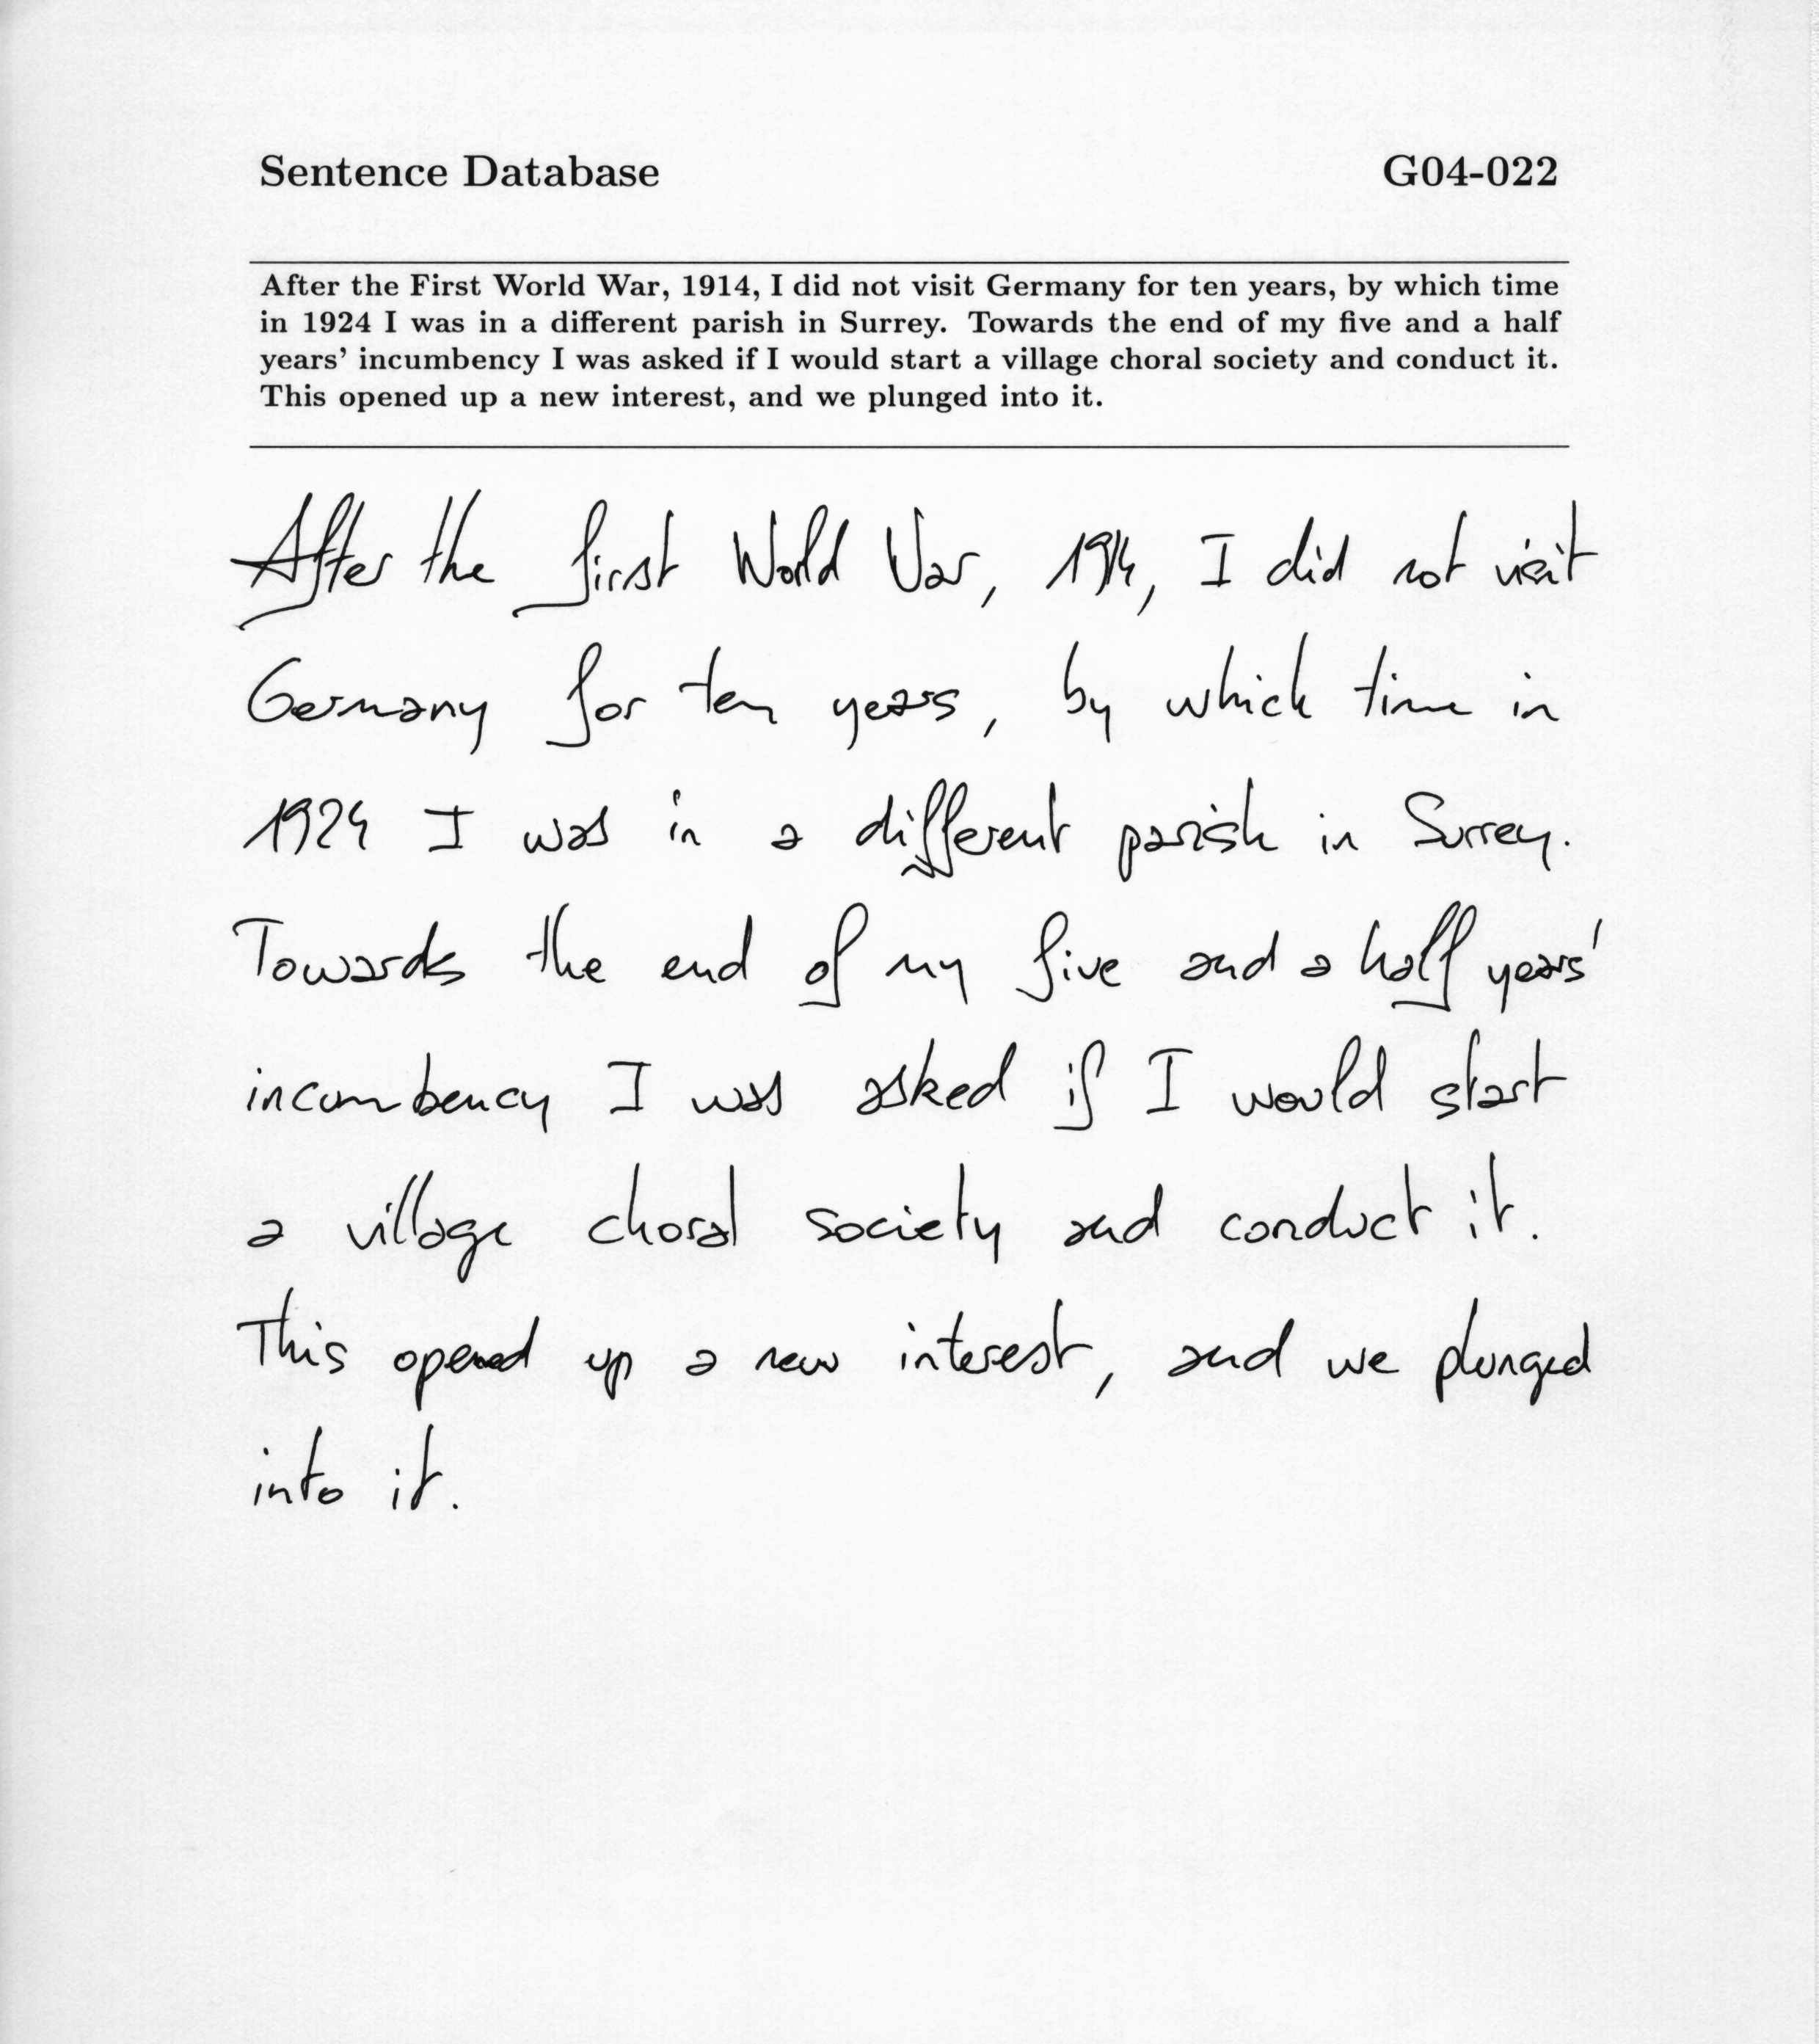 Sentence Database G04-022
After the First World War, 1914, I did not visit Germany for ten years, by which time
in 1924 I was in a different parish in Surrey. Towards the end of my five and a half
years' incumbency I was asked if I would start a village choral society and conduct it.
This opened up a new interest, and we plunged into it.
After the first World War, 1914, I did not visit
Germany for ten years, by which time in
1924 I was in a different parish in Surrey.
Towards the end of my five and a half years'
incumbency I was asked if I would start
a village choral society and conduct it.
This opened up a new interest, and we plunged
into it.